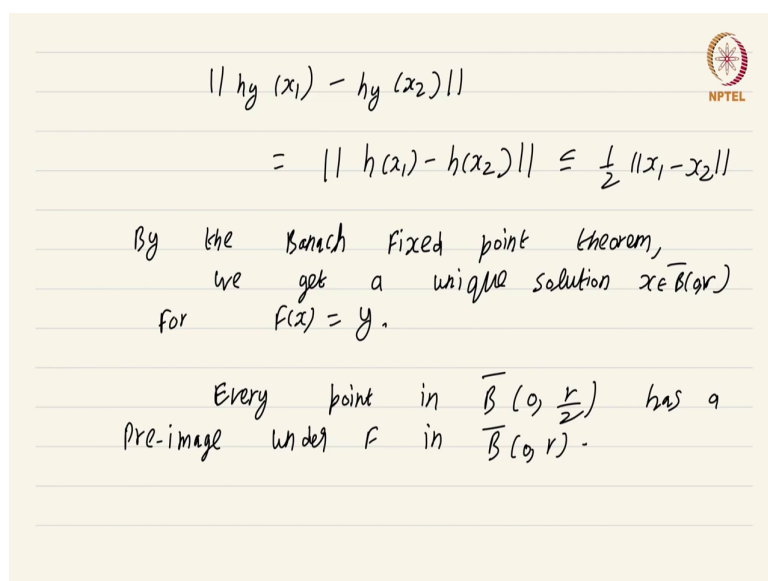 || hy (x₁) - hy (x₂) ||
NPTEL
= || h(x₁) - h(x₂) || ≤ 1/2 ||x₁ - x₂||
By the Banach Fixed point theorem,
we get a unique solution x ∈ B̅(0,r)
for F(x) = y.
Every point in B̅(0, r/2) has a
Pre-image under F in B̅(0, r).